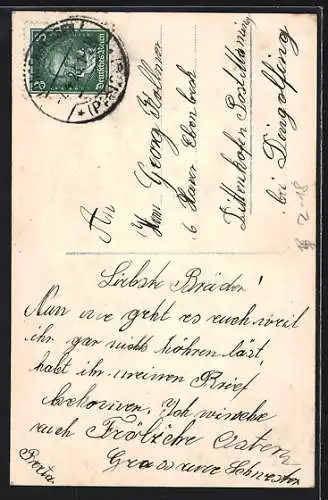 5 5
Deutsches Reich
(Pfalz)
An
Herrn Georg Kollmer
b Xaver Ebenbeck
Dittenkofen Poststation
bei Dingolfing
Liebste Brüder!
Nun wie geht es euch weil
ihr gar nichts höhren läst,
habt ihr meinen Brief
bekommen. Ich winsche
euch Fröliche Ostern
Gruss eure Schwester
Berta